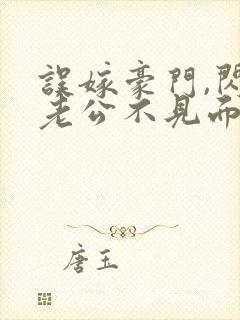 誤嫁豪門,閃
老公不見面
唐玉